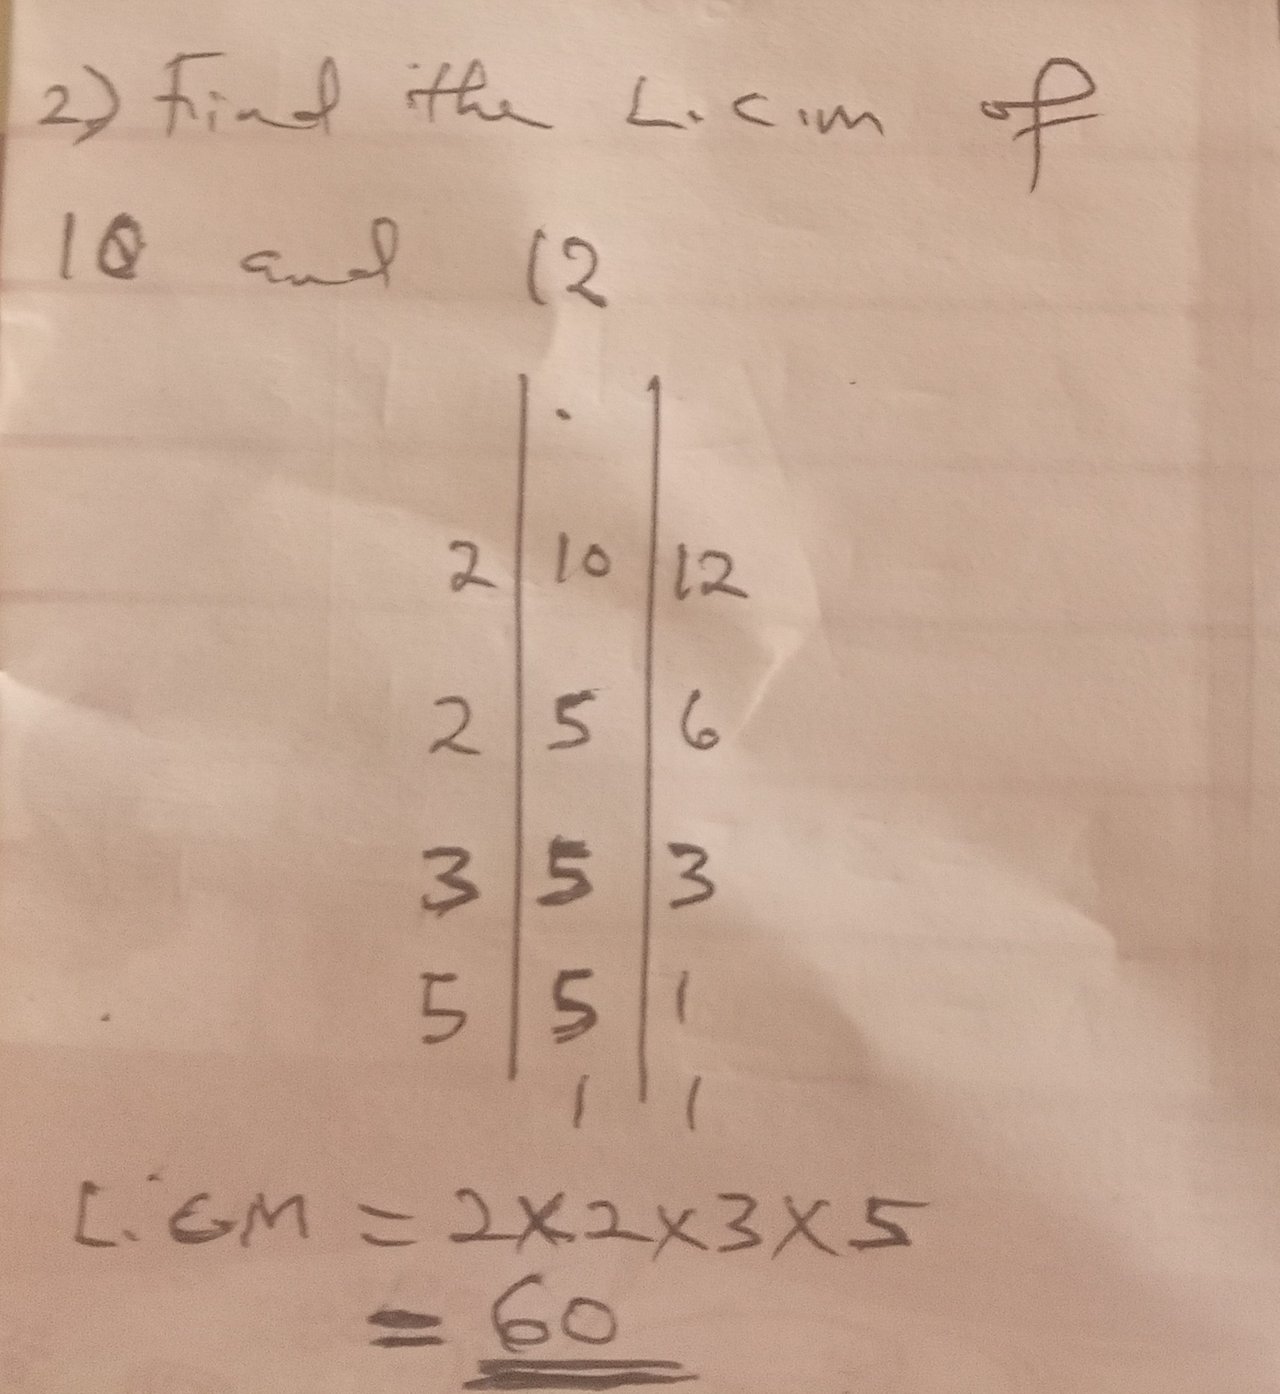 2) Find the L.c.m of
10 and 12
2 | 10 | 12
2 | 5 | 6
3 | 5 | 3
5 | 5 | 1
1 1
L.CM = 2x2x3x5
= 60